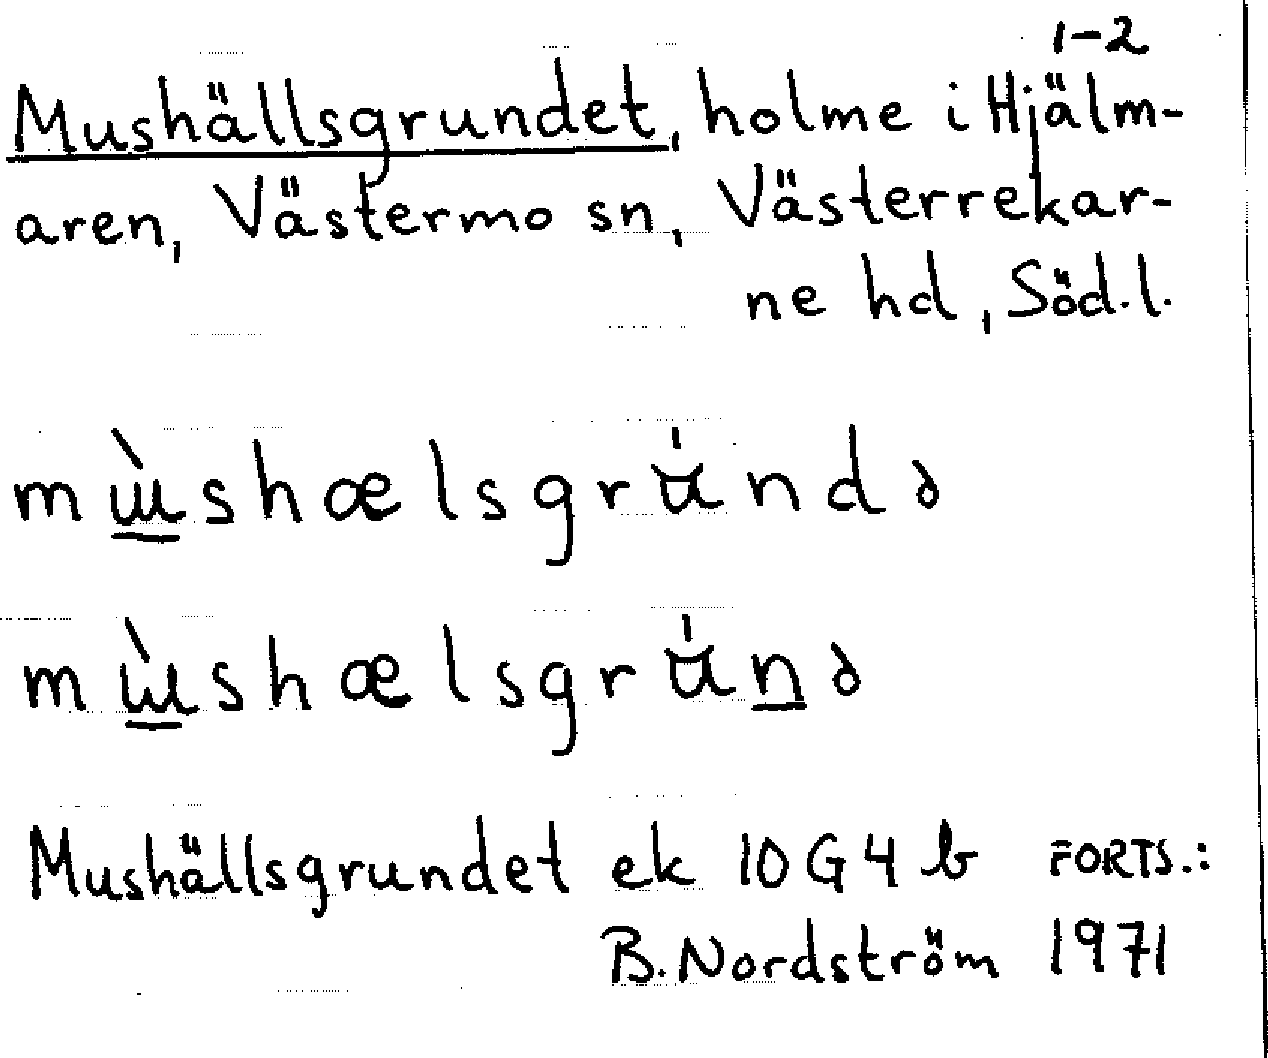 1-2
Mushällsgrundet, holme i Hjälm-
aren, Västermo sn, Västerrekar-
ne hd, Söd.l.
mɯ̲̀shælsgrú̆ndə
mɯ̲̀shælsgrú̆n̲ə
Mushällsgrundet ek 10 G 4 b FORTS.:
B. Nordström 1971